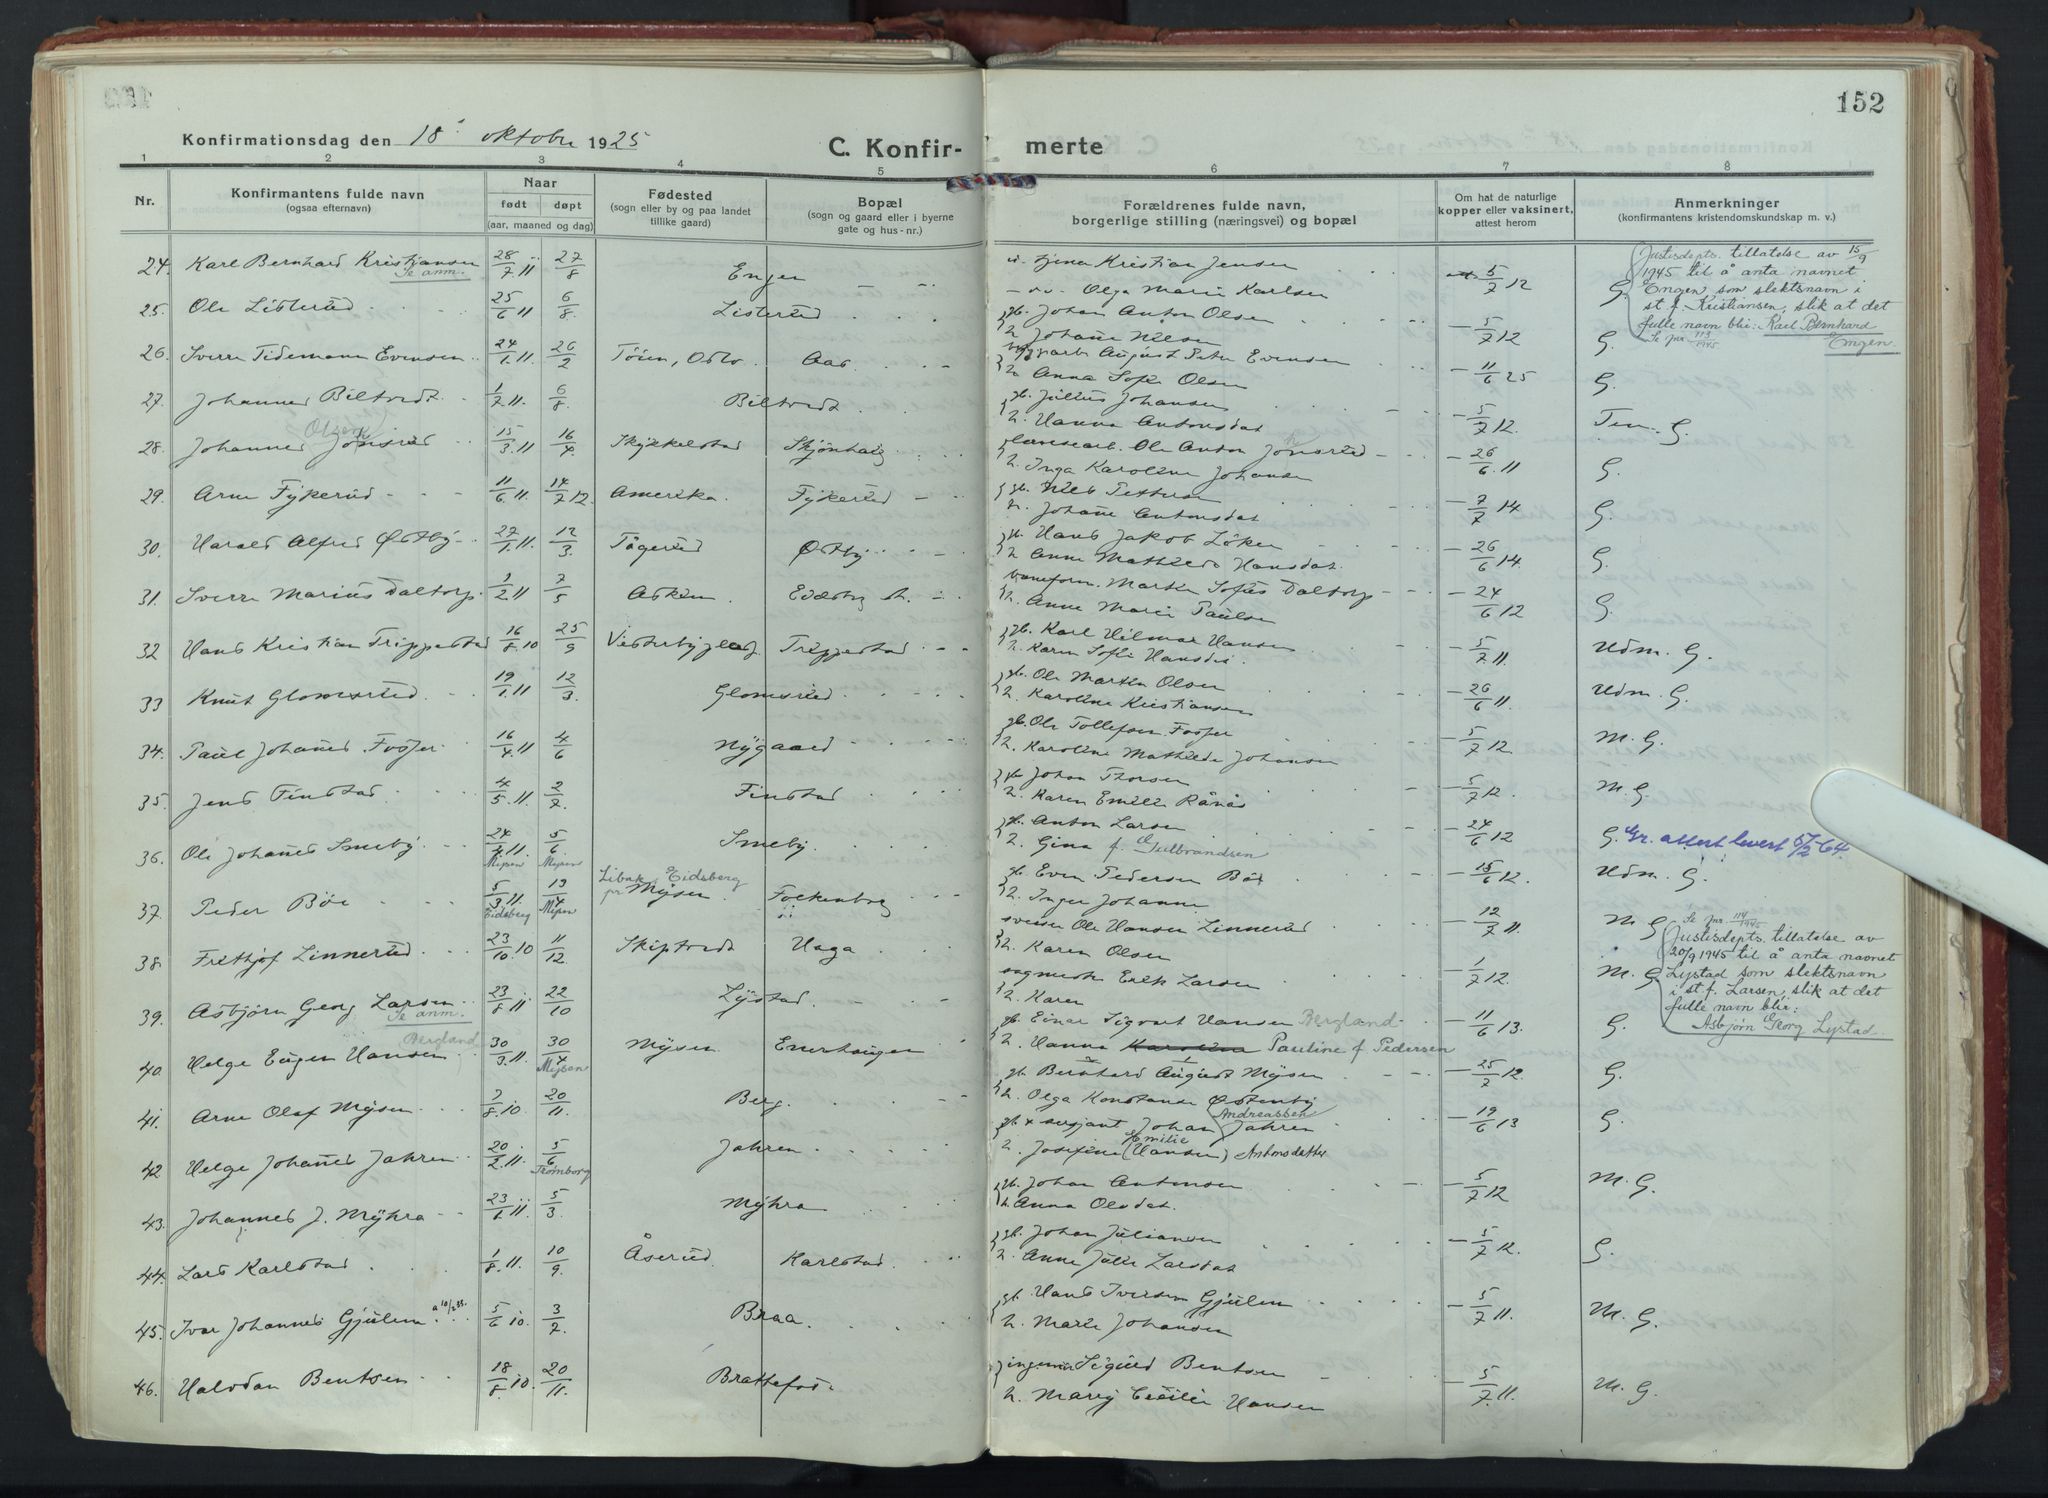 152
Konfirmationsdag den 18' oktober 1925
C. Konfirmerte
1 2 3 4 5 6 7 8
Nr.
Konfirmantens fulde navn
(ogsaa efternavn)
Naar
født døpt
(aar, maaned og dag)
Fødested
(sogn eller by og paa landet
tillike gaard)
Bopæl
(sogn og gaard eller i byerne
gate og hus-nr.)
Forældrenes fulde navn,
borgerlige stilling (næringsvei) og bopæl
Om hat de naturlige
kopper eller vaksinert,
attest herom
Anmerkninger
(konfirmantens kristendomskundskap m. v.)
24. Karl Bernhard Kristiansen 28/7 11 27/8 Engen Kristian Jensen 5/7 12 G.
Se anm. Olga Marie Karlsen
Justisdepts. tillatelse av 15/9
1945 til å anta navnet
Engen som slektsnavn i
st. f. Kristiansen, slik at det
fulle navn blir: Karl Bernhard
Engen
Se jnr 113/1945
25. Ole Listerud 25/6 11 6/8. Listerud gb. Johan Anton Olsen 5/7 12 G.
h. Johane Nilsen
26. Sverre Tidemann Evensen 24/1. 11. 26/2 Tøien, Oslo. Aas August Peter Evensen 11/6 25 G.
h. Anna Sofie Olsen
27. Johannes Biltvedt 1/7 11. 6/8. Biltvedt. gb. Julius Johansen 5/7 12. Tem. G.
h. Hanna Antonsdat
Olsen
28. Johannes Jonsrud 15/3. 11 16/4. Skjønhaug Ole Anton Jonsrud 26/6. 11 G.
h. Inga Karoline Johansen
29. Arne Fykerud 11/6 11. 14/7 12. Amerika. Fykerud gb. Nils Pettersen 7/7 14 G.
h. Johane Antonsdat
30. Harald Alfred Østby 27/1. 11. 12/3. Østby gb. Hans Jakob Løken 26/6 14. G.
h. Anne Mathilde Hansdat.
31. Sverre Marius Daltorp. 1/2 11 7/5 Askim. Martin Sofus Daltorp 24/6 12 G.
h. Anne Marie Paulsen
32 Hans Kristian Trippestad 16/8. 10 25/9 Trippestad gb. Karl Hilmar Hansen 5/7 11. Udm. G.
h. Karen Sofie Hansdat.
33 Knut Glomsrud. 19/1. 11 12/3. Glomsrud gb. Ole Martin Olsen 26/6 11. Udm. G.
h. Karoline Kristiansen
34. Paul Johannes Fosser. 16/4. 11 4/6 Nygaard gb. Ole Tollefsen Fosser 5/7 12. M. G.
h. Karoline Mathilde Johansen
35. Jens Finstad 4/5. 11. 2/7. Finstad gb. Johan Thorsen 5/7 12. M. G.
h. Karen Emilie Rånås
36. Ole Johannes Smeby 24/4 11. 5/6. Smeby. gb. Anton Larsen 24/6 12 G. Gr. attest levert 5/2 64.
h. Gina f. Gulbrandsen
Mysen Mysen
37. Peder Bøe 5/3 11. 19/4 Mysen Eidsberg Folkenborg gb. Even Pedersen Bøe 15/6 12. Udm. G.
Eidsberg Mysen h. Inger Johanne
38. Frithjof Linnerud 23/10. 10 11/12. Skiptvedt Haga Ole Hansen Linnerud 12/7 11. M. G
h. Karen Olsen
39. Asbjørn Georg Larsen 23/8 11 22/10 Lystad Erik Larsen 1/7 12. M. G
Se anm. h. Karen
Se jnr 114/1945
Justisdepts. tillatelse av
20/9 1945 til å anta navnet
Lystad som slektsnavn
i st. f. Larsen, slik at det
fulle navn blir:
Asbjørn Georg Lystad
Bergland
40. Helge Eugen Hansen 30/3. 11. 30/4 Mysen Enerhaugen gb. Einar Sigvart Hansen Bergland 11/6 13. G.
Mysen h. Hanna Karolina Pauline f Pedersen
41. Arne Olaf Mysen 7/8. 10 20/11. Berg. gb. Bernhard August Mysen 25/7 12. G.
h. Olga Konstanse Østenby
42 Helge Johannes Jahren 20/2. 11. 5/6 Jahren gb. + sersjant Johan Jahren 19/6 13 G.
Andreassen
Trømborg h. Josefine Emilie (Hansen) Antonsdatter
43. Johannes J. Myhra 23/1 11. 5/3. Myhra gb. Johan Antonsen 5/7 12 M. G.
h. Anna Olsdat.
44. Lars Karlstad 1/8. 11. 10/9. Åserud Karlstad gb. Johan Juliansen 5/7 12. G.
h. Anne Julie Larsdat
45. Ivar Johannes Gjulem a 10/2 35. 5/6 10. 3/7. Braa gb. Hans Iversen Gjulem 5/7 11. M. G.
h. Marte Johansen
46. Halvdan Bentsen 18/8. 10. 20/11. Brattefos ingeniør Sigurd Bentsen 5/7. 11. M. G.
h. Mary Cecilie Hansen